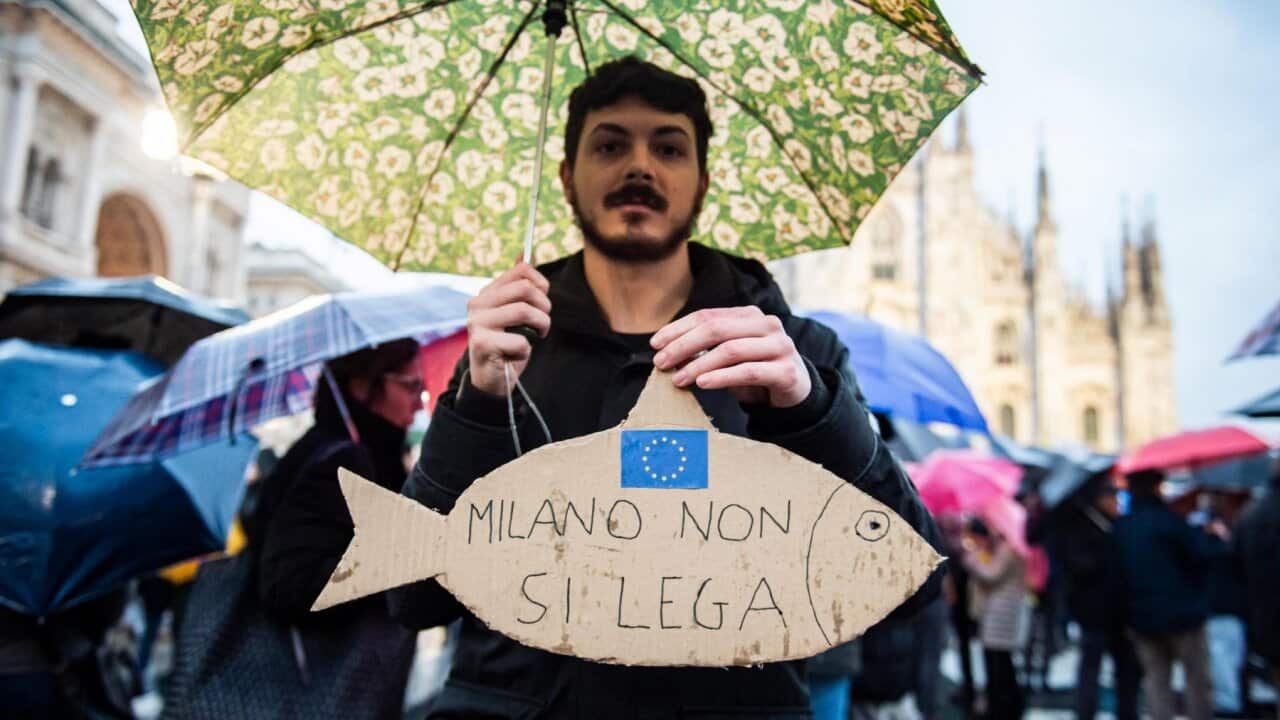 MILANO NON
SI LEGA